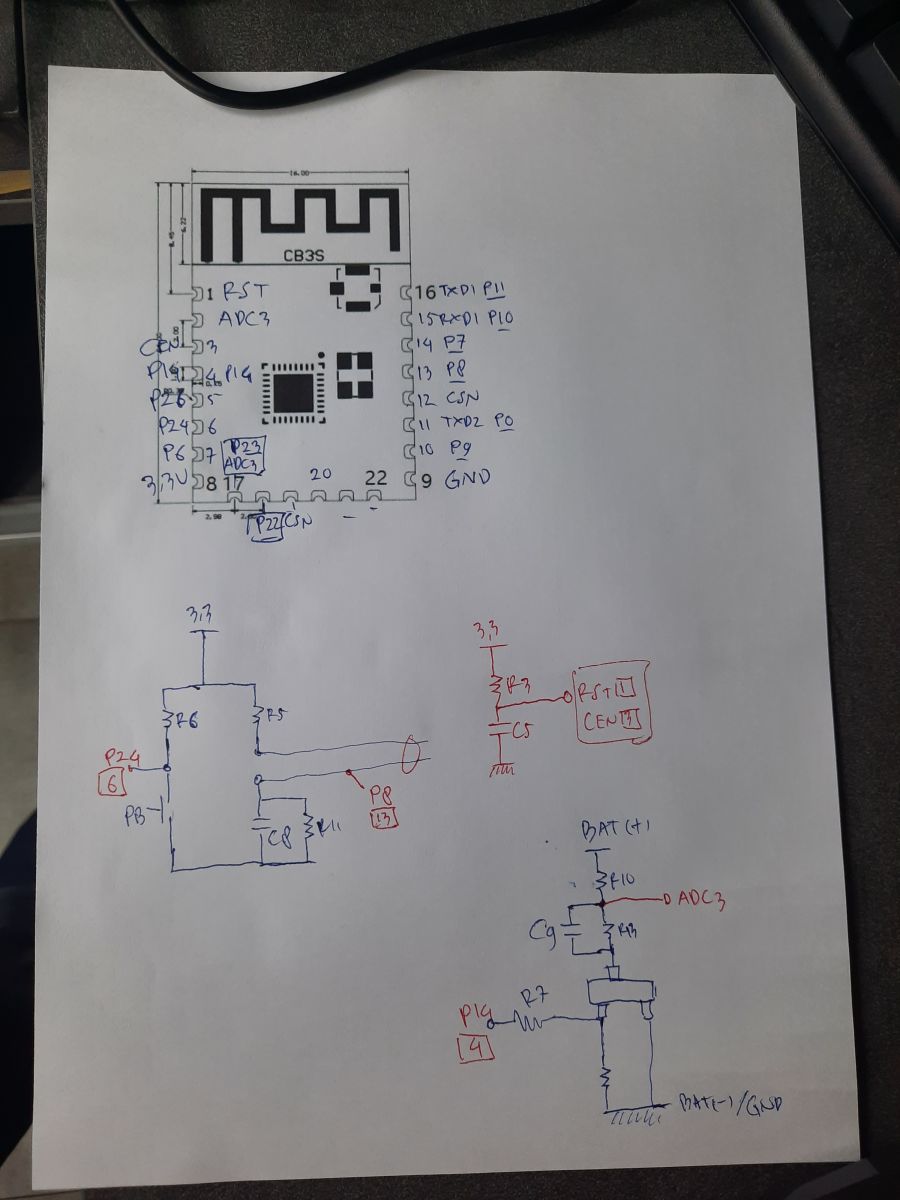 16.00
6.22
8.45
CB3S
1 RST
16 TXD1 P11
ADC3
15 RXD1 P10
CEN 3
14 P7
P14 4 P14
13 P8
P26 5
12 CSN
P24 6
11 TXD2 P0
P6 7
P23
ADC3
10 P9
3,3V 8 17
20
22
9 GND
2.98
P22 CSN
3,3
R6
R5
P24
6
PB
P8
13
C8
R11
3,3
R3
C5
RST 1
CEN 3
BAT(+)
R10
ADC3
C9
R13
R7
P14
4
BAT(-)/GND